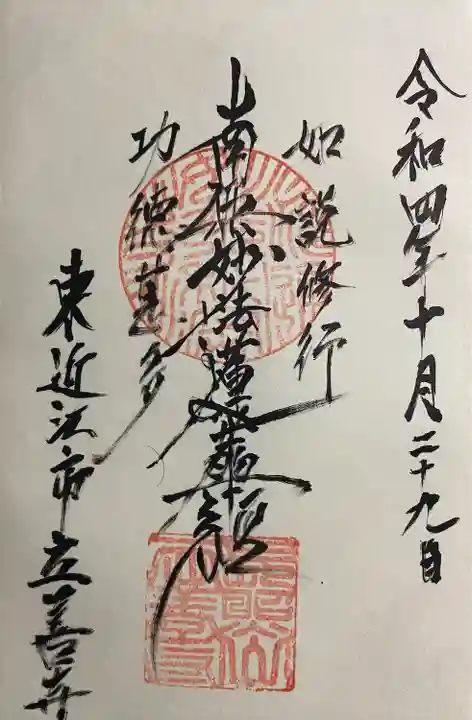 令和四年十月二十九日
如説修行
南無妙法蓮華経
功徳甚多
東近江市立善寺